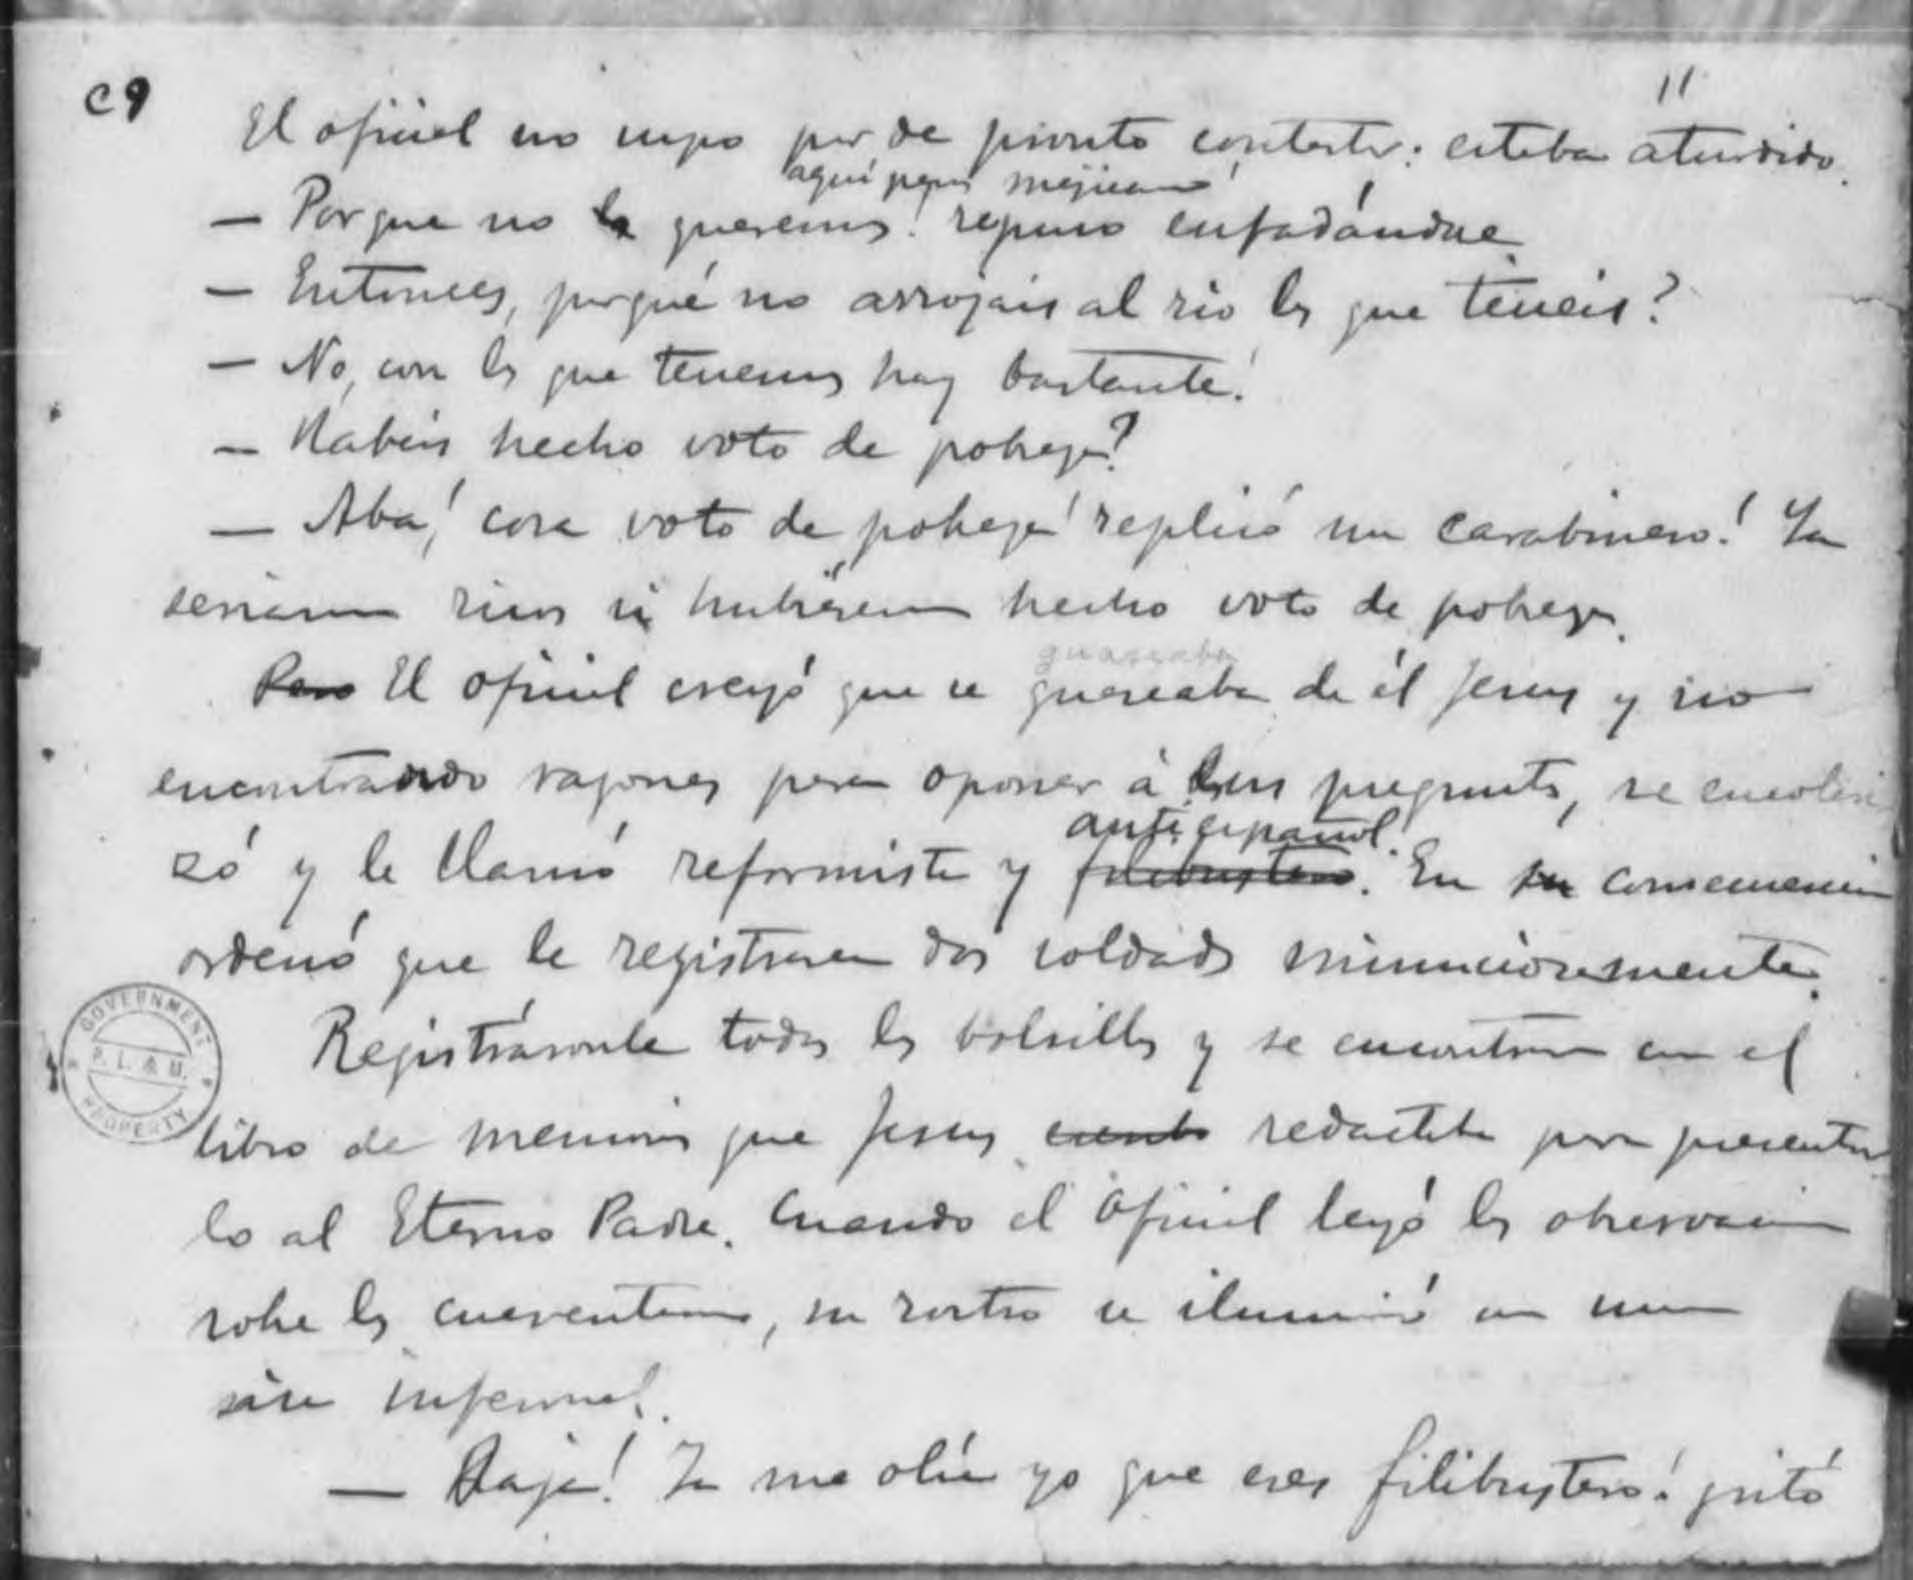 C9
11
El oficial no supo por de pronto contestar: estaba aturdido.
aquí pesos mejicanos!
— Porque no queremos! repuso enfadándose
— Entonces, porqué no arrojais al rio los que teneis?
— No, con los que tenemos hay bastante!
— Habeis hecho voto de pobreza?
— Aba! cosa voto de pobreza! replicó un carabinero! Ya
serian ricos si hubiesen hecho voto de pobreza.
guaseaba
Pero El oficial creyó que se guaseaba de él Jesus y no
encontrando razones para oponer á sus preguntas, se encoleri
zó y le llamó reformista y filibustero. En su consecuencia
anti español.
ordenó que le registrasen dos soldados minuciosamente.
Registráronle todos los bolsillos y se encontraron en el
GOVERNMENT PROPERTY
libro de memorias que Jesus redactaba para presentar
lo al Eterno Padre. Cuando el oficial leyó las observaciones
sobre los cuarenta, su rostro se iluminó con una
risa infernal.
— Ajajá! Ya me olía yo que eres filibustero! gritó